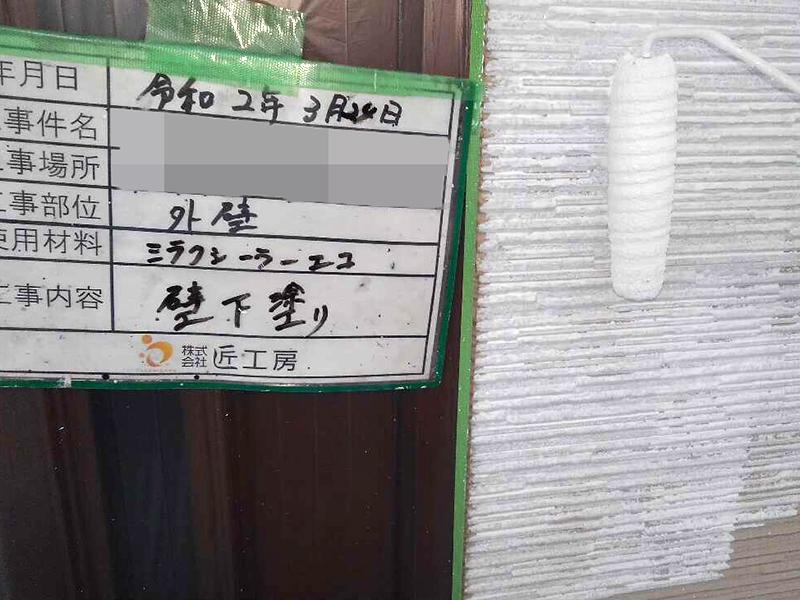 年月日 令和 2年 3月24日
事件名
事場所
工事部位 外壁
使用材料 ミラクシーラーエコ
工事内容 壁下塗り
株式会社 匠工房